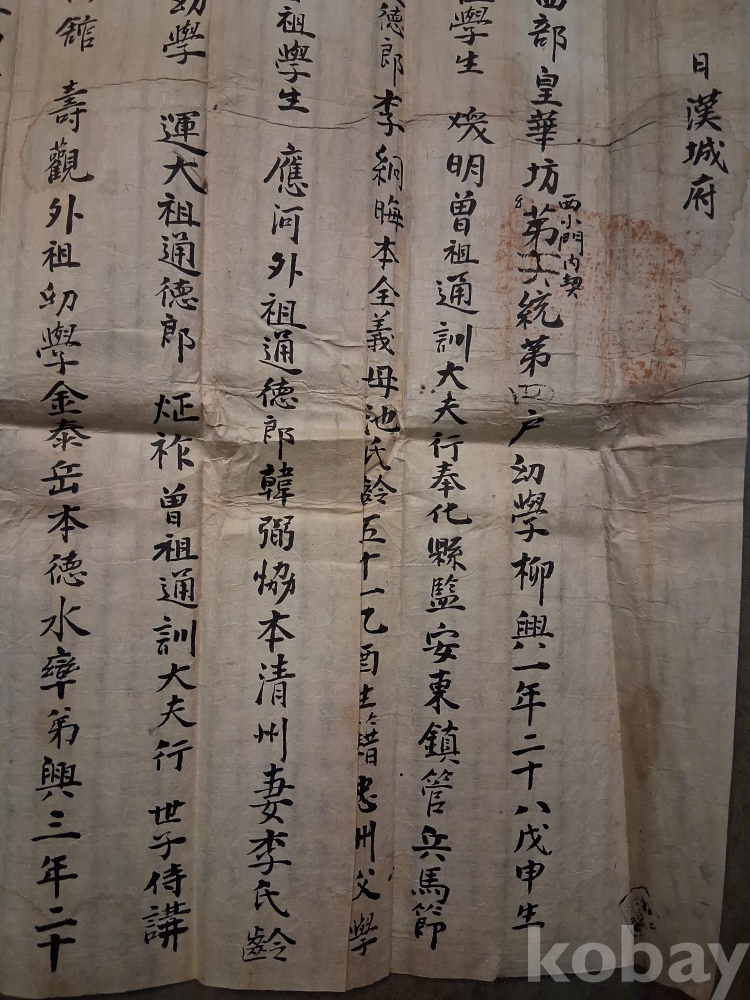 日漢城府
西部皇華坊第六統第四戶幼學柳興一年二十八戊申生
西小門內契
學生 煥明曾祖通訓大夫行奉化縣監安東鎮管兵馬節
德郎李 晦本全義母池氏齡五十一乙酉生籍忠州父學
祖學生 應河外祖通德郎韓弼協本清州妻李氏齡
幼學 運大祖通德郎 炡祚曾祖通訓大夫行 世子侍講
館 壽觀外祖幼學金泰岳本德水率弟興三年二十
kobay